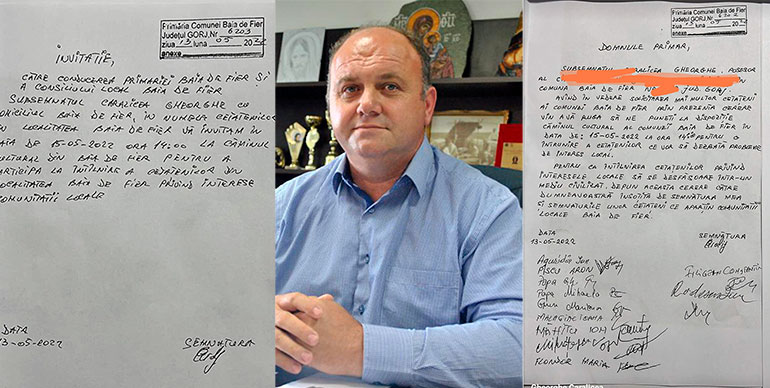 Primăria Comunei Baia de Fier
Județul GORJ. Nr 6203
ziua 13 luna 05 20
anexe
INVITAȚIE,
CĂTRE CONDUCEREA PRIMĂRIEI BAIA DE FIER ȘI
A CONSILIULUI LOCAL BAIA DE FIER
SUBSEMNATUL CARALICEA GHEORGHE CU
DOMICILIUL BAIA DE FIER, ÎN NUMELE CETĂȚENILOR
LOCALITATEA BAIA DE FIER VĂ INVITĂM ÎN
DE 15-05-2022 ORA 14:00 LA CĂMINUL
DIN BAIA DE FIER PENTRU A
LA ÎNTÎLNIRE A CETĂȚENILOR DIN
LOCALITATEA BAIA DE FIER PRIVIND INTERESE
COMUNITĂȚII LOCALE
DATA
13-05-2022
SEMNĂTURA
Primăria Comunei Baia de Fier
Județul GORJ. Nr 6202
ziua 13 luna 05 20
anexe
DOMNULE PRIMAR,
SUBSEMNATUL GHEORGHE, POSESOR
AL
COMUNA BAIA DE FIER JUD. GORJ
AVÎND ÎN VEDERE SOLICITAREA MAI MULTOR CETĂȚENI
AI COMUNEI BAIA DE FIER PRIN PREZENTA CERERE
VIN A VĂ RUGA SĂ NE PUNEȚI LA DISPOZIȚIE
CĂMINUL CULTURAL AL COMUNEI BAIA DE FIER ÎN
DATA DE 15-05-2022 ORA PENTRU O
ÎNTRUNIRE A CETĂȚENILOR CE VOR SĂ DEZBATĂ PROBLEME
DE INTERES LOCAL.
PENTRU CA ÎNTÎLNIREA CETĂȚENILOR PRIVIND
INTERESELE LOCALE SĂ SE DESFĂȘOARE ÎNTR-UN
MEDIU CIVILIZAT, DEPUN ACEASTĂ CERERE CĂTRE
DUMNEAVOASTRĂ ÎNSOȚITĂ DE SEMNĂTURA MEA
ȘI SEMNĂTURILE UNOR CETĂȚENI CE APARȚIN COMUNITĂȚII
LOCALE BAIA DE FIER.
DATA
13-05-2022
SEMNĂTURA
PÎSCU ARON
Popa Gh.
Popa Mihaela
FILIGEAN CONSTANTIN
MARIA
Gheorghe Caralicea